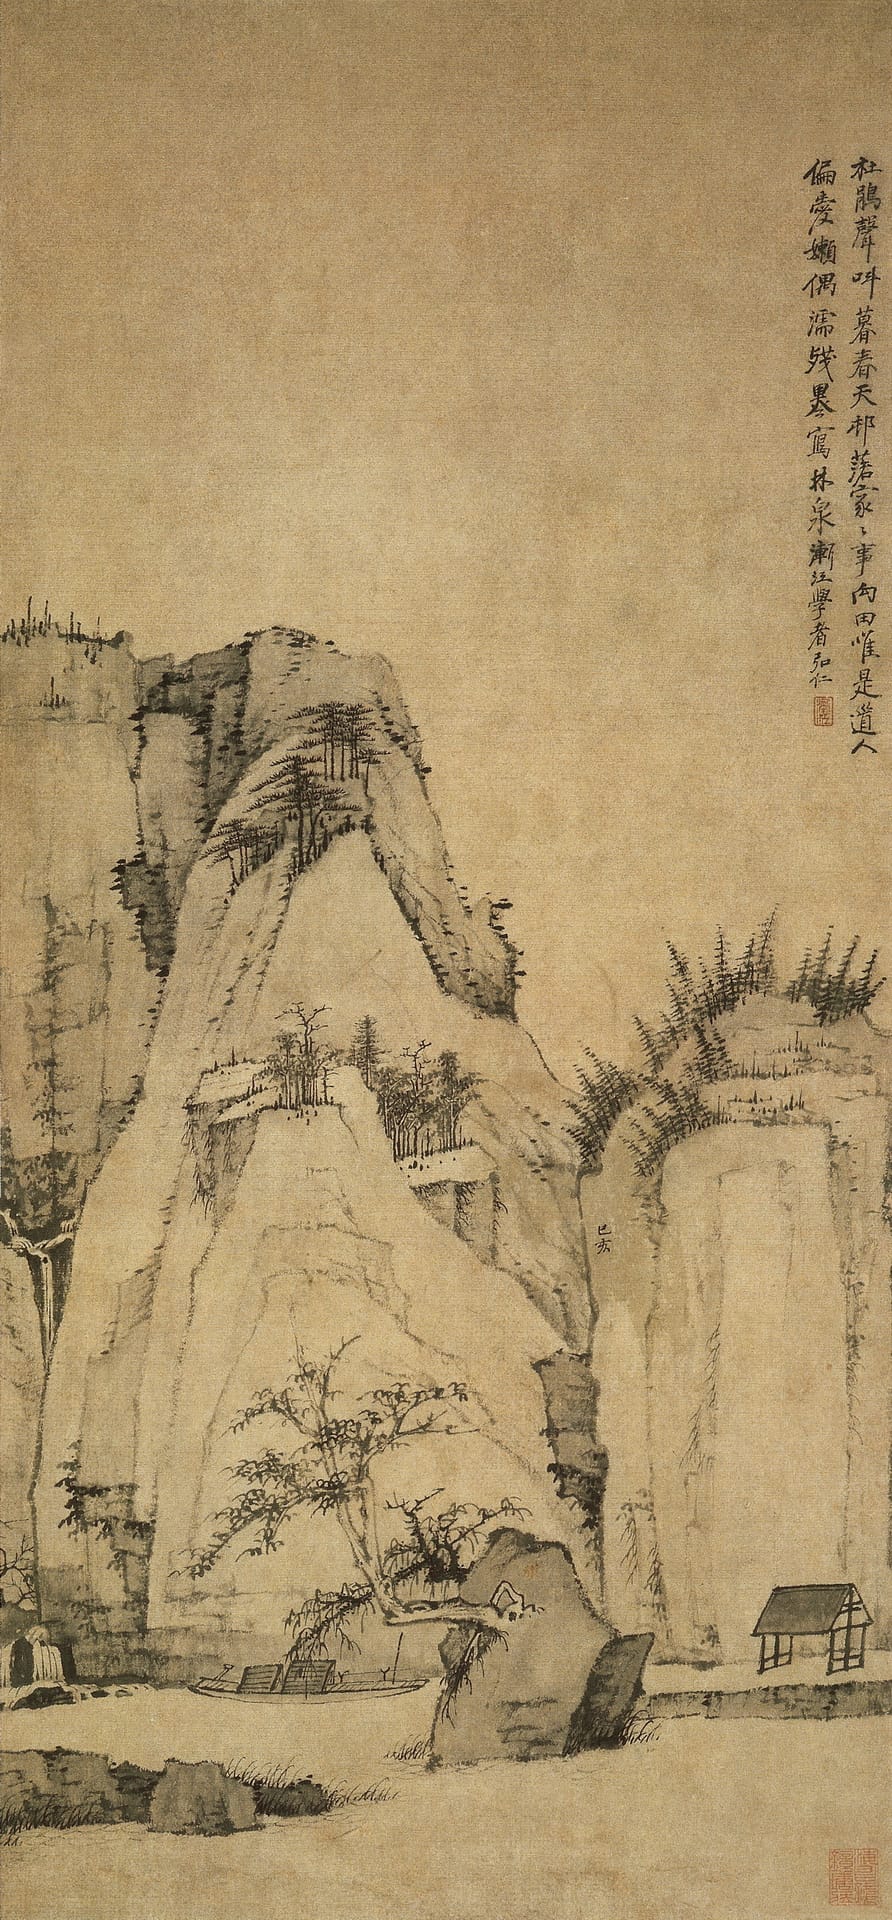 杜鵑聲叫暮春天邨落家〻事向田唯是道人
偏愛嬾偶濡殘墨寫林泉漸江學者弘仁
己亥